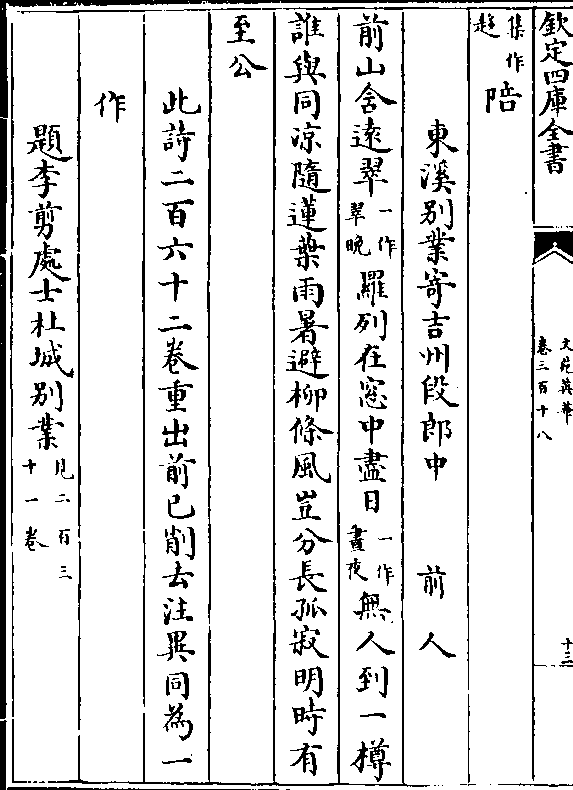 欽定四庫全書
文苑英華
卷三百十八
十三
集作
趍
陪
東溪别業寄吉州段郎中 前人
前山含逺翠一作翠晚羅列在窓中盡日一作晝夜無人到一樽
誰與同凉隨蓮葉雨暑避柳條風豈分長孤寂明時有
至公
此詩二百六十二卷重出前已削去注異同為一
作
題李剪處士杜城别業見二百三十一卷